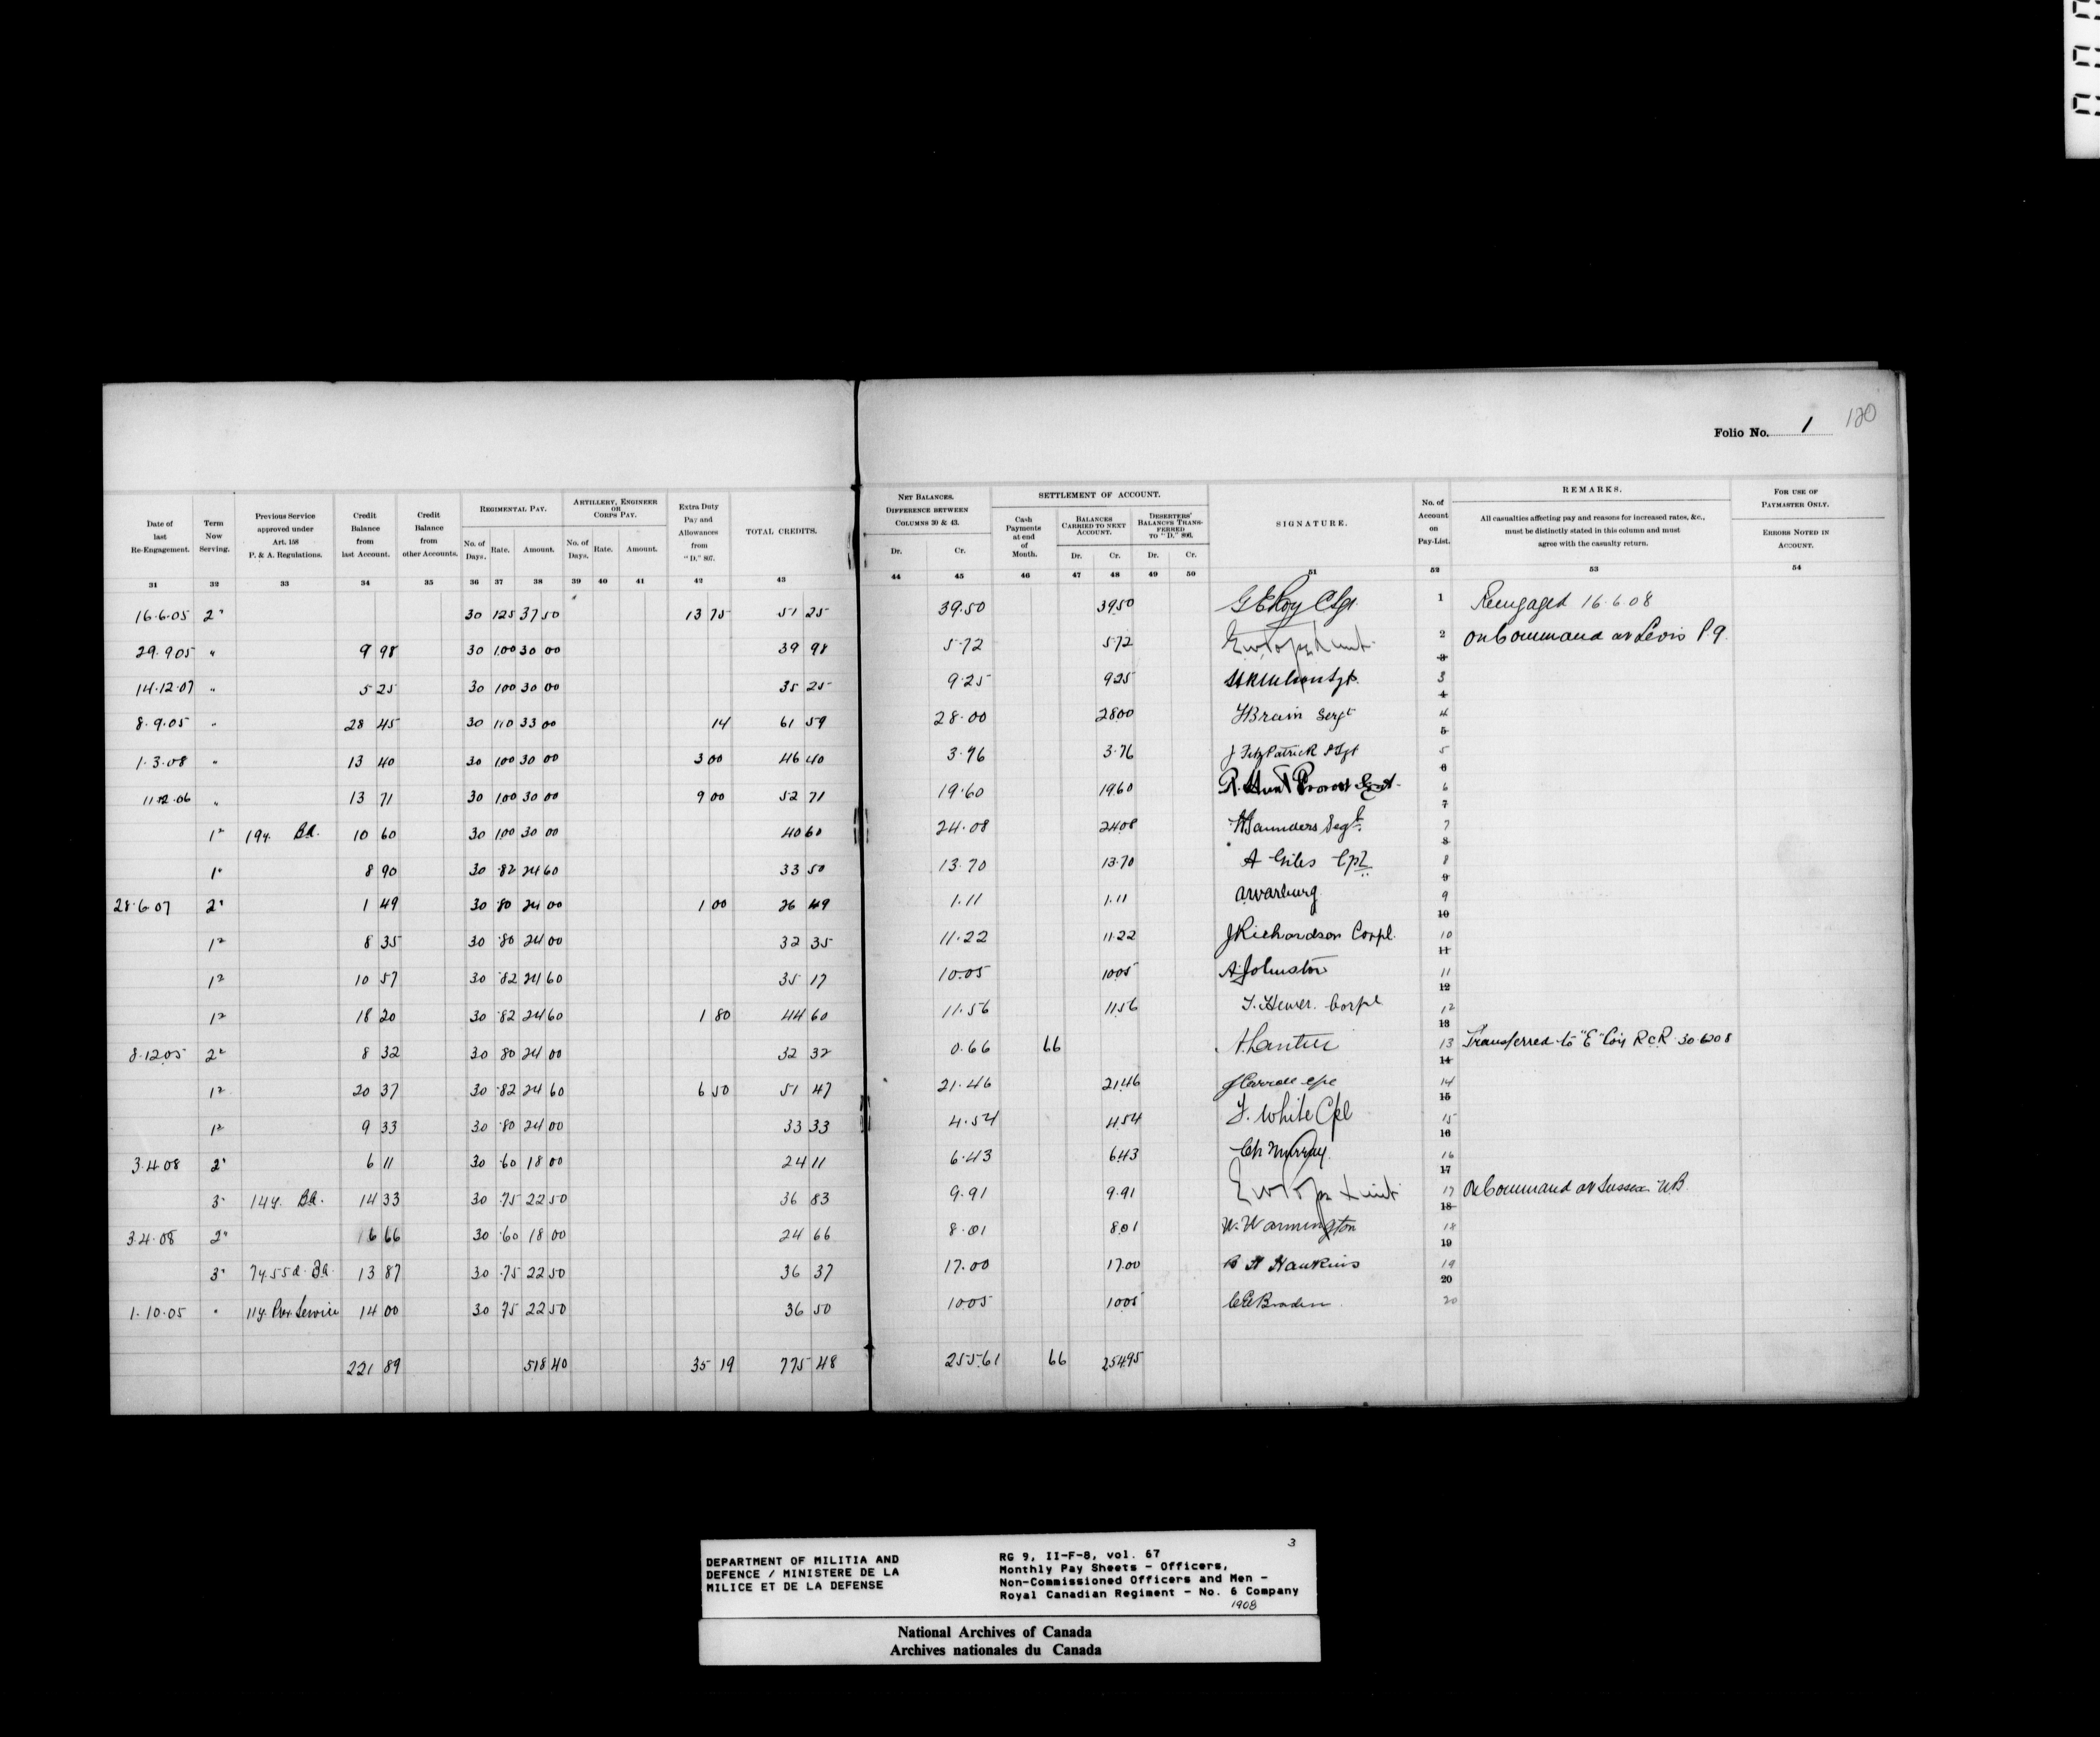 Folo No. 1 120
Date of last Re-Engagement. Term Now Serving. Previous Service approved under Art. 158 P. & A. Regulations. Credit Balance from last Account. Credit Balance from other Accounts. REGIMENTAL PAY. No. of Days. Rate. Amount. ARTILLERY, ENGINEER OR CORPS PAY. No. of Days. Rate. Amount. Extra Duty Pay and Allowances from "D." 807. TOTAL CREDITS. NET BALANCES. DIFFERENCE BETWEEN COLUMNS 30 & 43. Dr. Cr. SETTLEMENT OF ACCOUNT. Cash Payments at end of Month. BALANCES CARRIED TO NEXT ACCOUNT. Dr. Cr. DESERTERS' BALANCES TRANSFERRED TO "D." 806. Dr. Cr. SIGNATURE. No. of Account on Pay-List. REMARKS. All casualties affecting pay and reasons for increased rates, &c., must be distinctly stated in this column and must agree with the casualty return. FOR USE OF PAYMASTER ONLY. ERRORS NOTED IN ACCOUNT.
31 32 33 34 35 36 37 38 39 40 41 42 43 44 45 46 47 48 49 50 51 52 53 54
16.6.05 2" 30 125 37 50 13 75 51 25 39.50 39.50 G E Roy 1 Reengaged 16.6.08
29.9.05 " 9 98 30 1.00 30 00 39 98 5.72 5.72 2 On Command at Levis P.Q.
14.12.07 " 5 25 30 1.00 30 00 35 25 9.25 9.25 3 3
8.9.05 " 28 45 30 1.10 33 00 14 61 59 28.00 28.00 Brain Sergt 4 4
1.3.08 " 13 40 30 1.00 30 00 3 00 46 40 3.76 3.76 J FitzPatrick 5 5
11.12.06 " 13 71 30 1.00 30 00 9 00 52 71 19.60 19.60 R. Hunt Provost Sergt. 6 6
1" 19y. Ba. 10 60 30 1.00 30 00 40 60 24.08 24.08 Saunders Sergt. 7 7
1" 8 90 30 .82 24 60 33 50 13.70 13.70 A Giles Cpl 8 8
28.6.07 2" 1 49 30 80 24 00 1 00 26 49 1.11 1.11 A Warburg 9 9
1" 8 35 30 .80 24 00 32 35 11.22 11.22 J Richardson Corpl. 10 10
1" 10 57 30 .82 24 60 35 17 10.05 10.05 A Johnston 11 11
1" 18 20 30 .82 24 60 1 80 44 60 11.56 11.56 Corpl 12 12
8.12.05 2" 8 32 30 80 24 00 32 32 0.66 66 13 13 Transferred to "E" Coy R C R. 30.6.08
1" 20 37 30 .82 24 60 6 50 51 47 21.46 21.46 14 14
1" 9 33 30 .80 24 00 33 33 4.54 4.54 F. White Cpl 15 15
3.4.08 2" 6 11 30 .60 18 00 24 11 6.43 6.43 Murray 16 16
3" 14y. Ba. 14 33 30 .75 22 50 36 83 9.91 9.91 17 17 On Command at Sussex N.B.
3.4.08 2" 6 66 30 .60 18 00 24 66 8.01 8.01 W. Warmington 18 18
3" 7y.55d. Ba. 13 87 30 .75 22 50 36 37 17.00 17.00 Hawkins 19 19
1.10.05 " 11y. Prev. Service 14 00 30 75 22 50 36 50 10.05 10.05 Braden 20 20
221 89 518 40 35 19 775 48 255.61 66 254.95
3
DEPARTMENT OF MILITIA AND
DEFENCE / MINISTERE DE LA
MILICE ET DE LA DEFENSE
RG 9, II-F-8, vol. 67
Monthly Pay Sheets - Officers,
Non-Commissioned Officers and Men -
Royal Canadian Regiment - No. 6 Company
1908
National Archives of Canada
Archives nationales du Canada